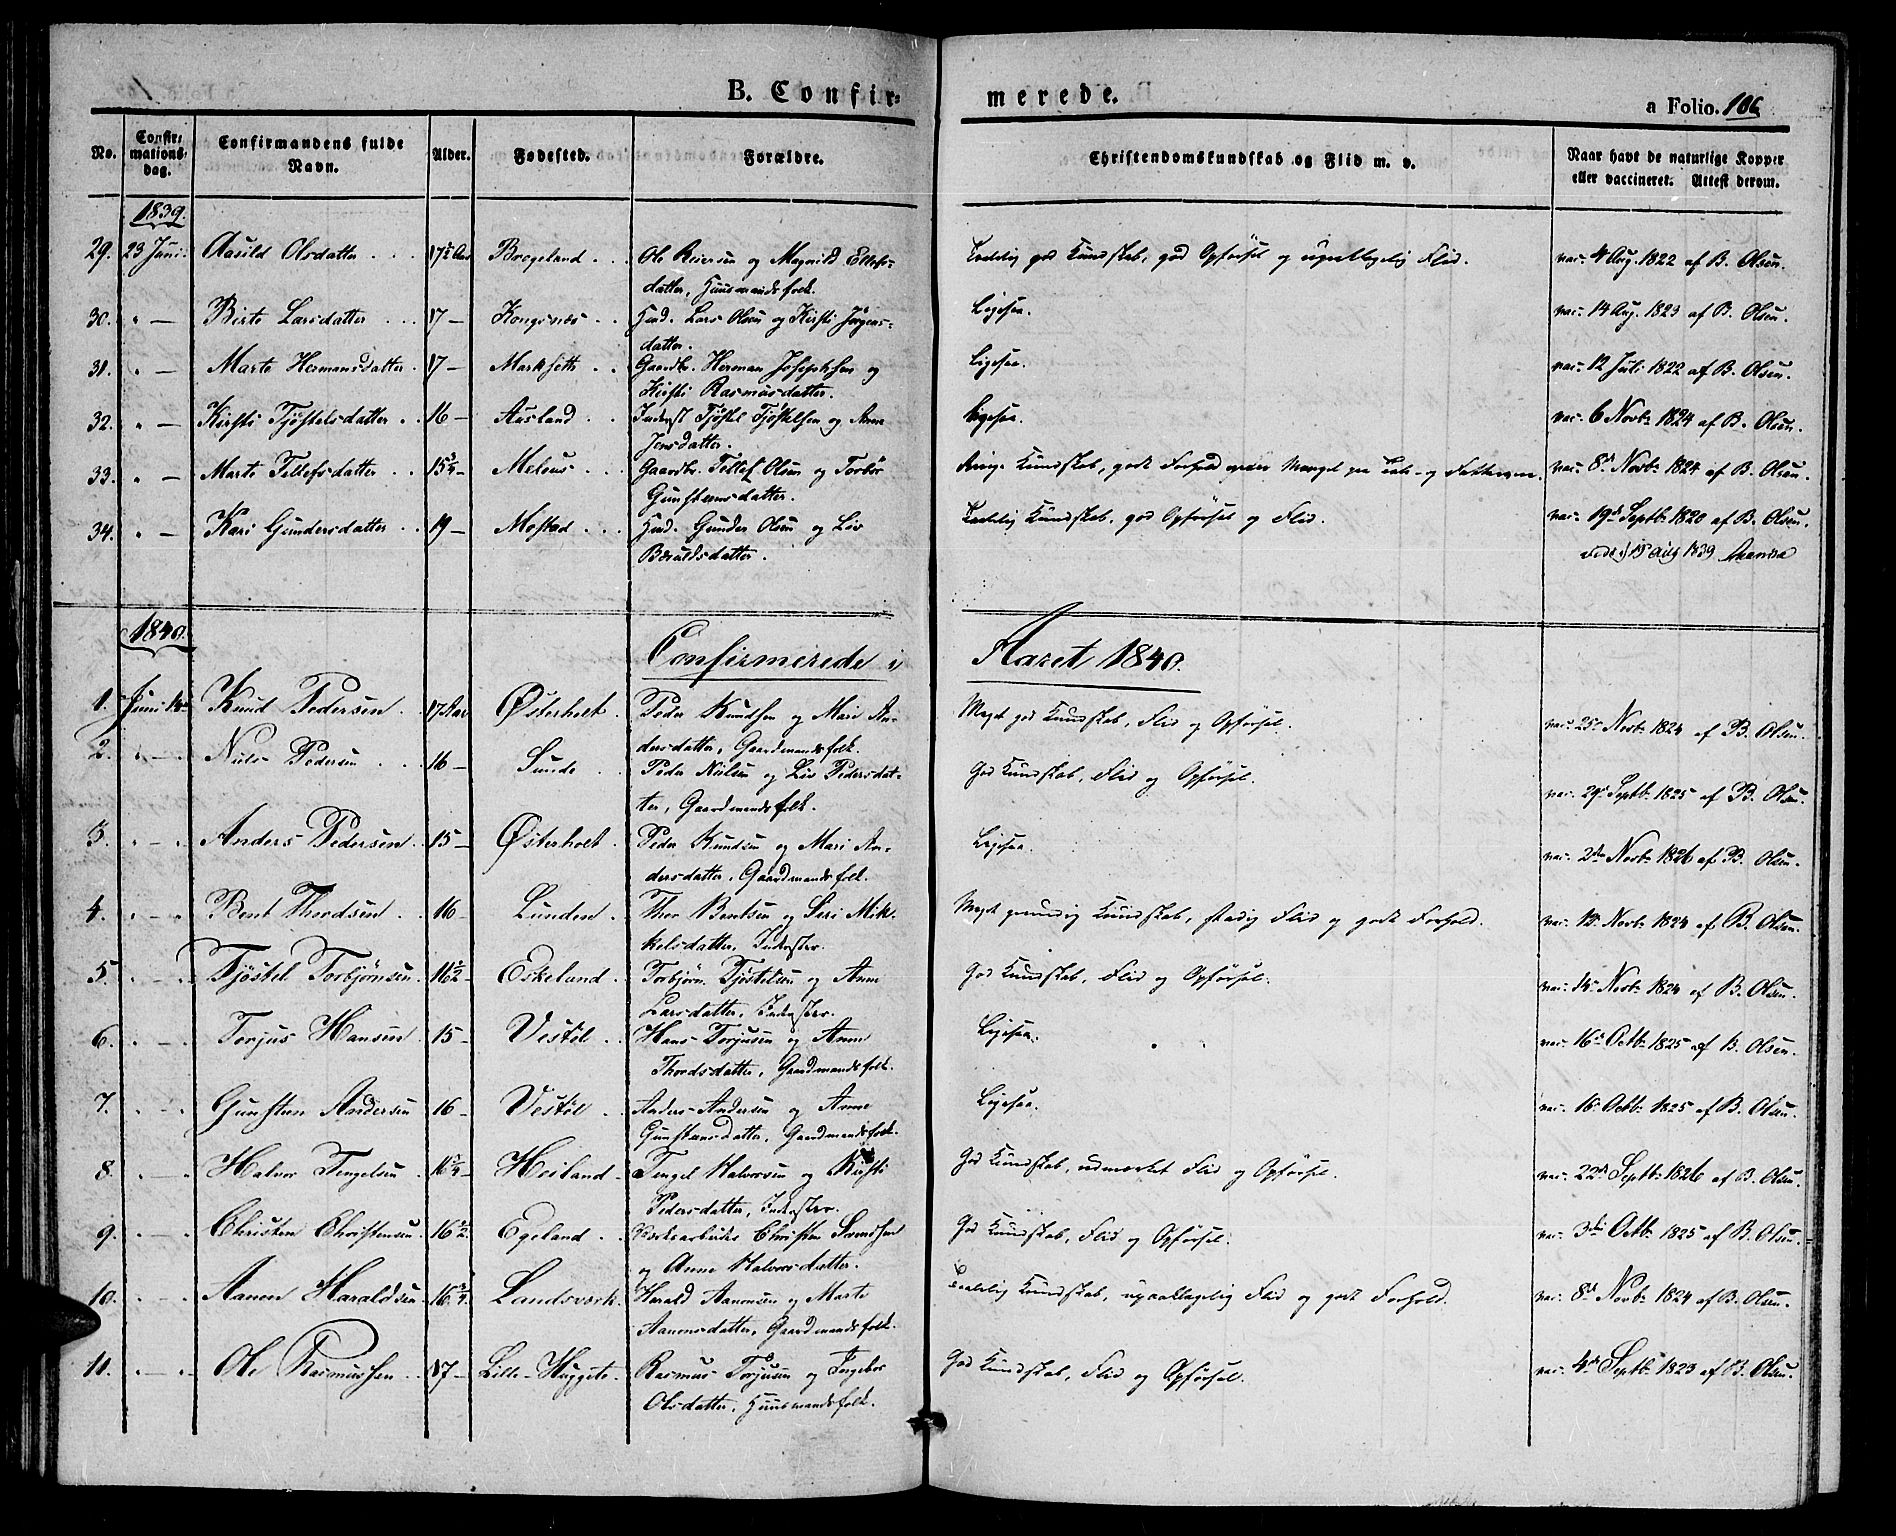 B. Confir-
merede.
a Folio. 106
No.
Confir-
mations-
dag.
Confirmandens fulde
Navn.
Alder.
Fødested.
Forældre.
Christendomskundskab og Flid m. v.
Naar havt de naturlige Kopper
eller vaccineret. Attest derom.
1839.
29. 23 Juni. Aasild Olsdatter . . . 17½ Aar Brægeland . . . Ole Reiersen og Magnild Ellefs-
datter, Huusmandsfolk.
Taalelig god Kundskab, god Opførsel og upaaklagelig Flid.
vac. 4 Aug. 1822 af B. Olsen.
30. " — Birte Larsdatter . . . 17 — Kongsnæs . . Hmd. Lars Olsen og Kirsti Jørgens-
datter.
Ligesaa.
vac. 14 Aug. 1823 af B. Olsen.
31. " — Marte Hermansdatter . 17 — Marksett . . Gaardbr. Herman Josephsen og
Kirsti Rasmusdatter.
Ligesaa.
vac. 12 Juli 1822 af B. Olsen.
32. " — Kirsti Tjøstelsdatter . . 16 — Ausland . . . Inderst Tjøstel Tjøstelsen og Anne
Jensdatter.
Ligesaa.
vac. 6 Novbr. 1824 af B. Olsen.
33. " — Marte Tellefsdatter . . 15¾ — Meleus . . . Gaardbr. Tellef Olsen og Torbør
Gunsteensdatter.
Ringe Kundskab, godt Forhold under Mangel paa
vac. 8de Novbr. 1824 af B. Olsen.
34. " — Kari Gundersdatter . . 19 — Mostad . . . Hmd. Gunder Olsen og Liv
Bæruldsdatter.
Taalelig Kundskab, god Opførsel og Flid.
vac. 19de Septb. 1820 af B. Olsen.
15 Aug 1839
1840.
Confirmerede i
Aaret 1840.
1. Juni 14de Knud Pedersen . . 17 Aar Østerholt . Peder Knudsen og Mari An-
dersdatter, Gaardmandsfolk.
Meget god Kundskab, Flid og Opførsel.
vac. 25de Novbr. 1824 af B. Olsen.
2. " — " Niels Pedersen . . . 16 — Sunde . . Peder Nielsen og Liv Pedersdat-
ter, Gaardmandsfolk.
God Kundskab, Flid og Opførsel.
vac. 29de Septb. 1825 af B. Olsen.
3. " — " Anders Pedersen . 15 — Østerholt . Peder Knudsen og Mari An-
dersdatter, Gaardmandsfolk.
Ligesaa.
vac. 2den Novbr. 1826 af B. Olsen.
4. " — " Bent Thordsen . . 16 — Lunden . . Thor Bentsen og Siri Mik-
kelsdatter, Inderster.
Meget grundig Kundskab, stadig Flid og godt Forhold.
vac. 12te Novbr. 1824 af B. Olsen.
5. " — " Tjøstel Torbjørnsen . 16½ — Eskeland . Torbjørn Tjøstelsen og Anne
Larsdatter, Inderster.
God Kundskab, Flid og Opførsel.
vac. 14de Novbr. 1824 af B. Olsen.
6. " — " Torjus Hansen . 15 — Vestøl . . Hans Torjusen og Anne
Thordsdatter, Gaardmandsfolk.
Ligesaa.
vac. 16de Octb. 1825 af B. Olsen.
7. " — " Gunsteen Andersen 16 — Vestøl . . Anders Andersen og Anne
Gunsteensdatter, Gaardmandsfolk.
Ligesaa.
vac. 16 Octb. 1825 af B. Olsen.
8. " — " Halvor Tengelsen . 16¾ — Heiland . Tengel Halvorsen og Kirsti
Pedersdatter, Inderster.
God Kundskab, udmærket Flid og Opførsel.
vac. 22de Septb. 1826 af B. Olsen.
9. " — " Christen Christensen . 16½ Egeland . . Værksarbeider Christen Svendsen
og Anne Halvorsdatter.
God Kundskab, Flid og Opførsel.
vac. 3die Octb. 1825 af B. Olsen.
10. " — " Aanen Haraldsen . 16¾ Landsverk . Harald Aanonsen og Marte
Aanonsdatter, Gaardmandsfolk.
Taalelig Kundskab, upaaklagelig Flid og godt Forhold.
vac. 8de Novb. 1824 af B. Olsen.
11. " — " Ole Rasmussen . . 17 — Lille-Huggite . Rasmus Torjusen og Ingebor
Olsdatter, Huusmandsfolk.
God Kundskab, Flid og Opførsel.
vac. 4de Septb. 1823 af B. Olsen.